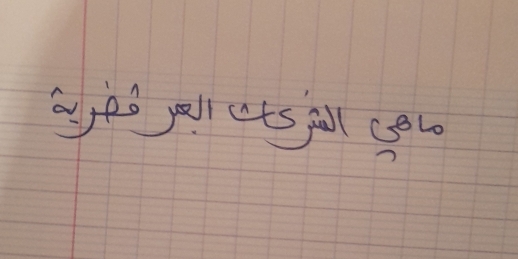 ماهي الشركات العبر قطرية